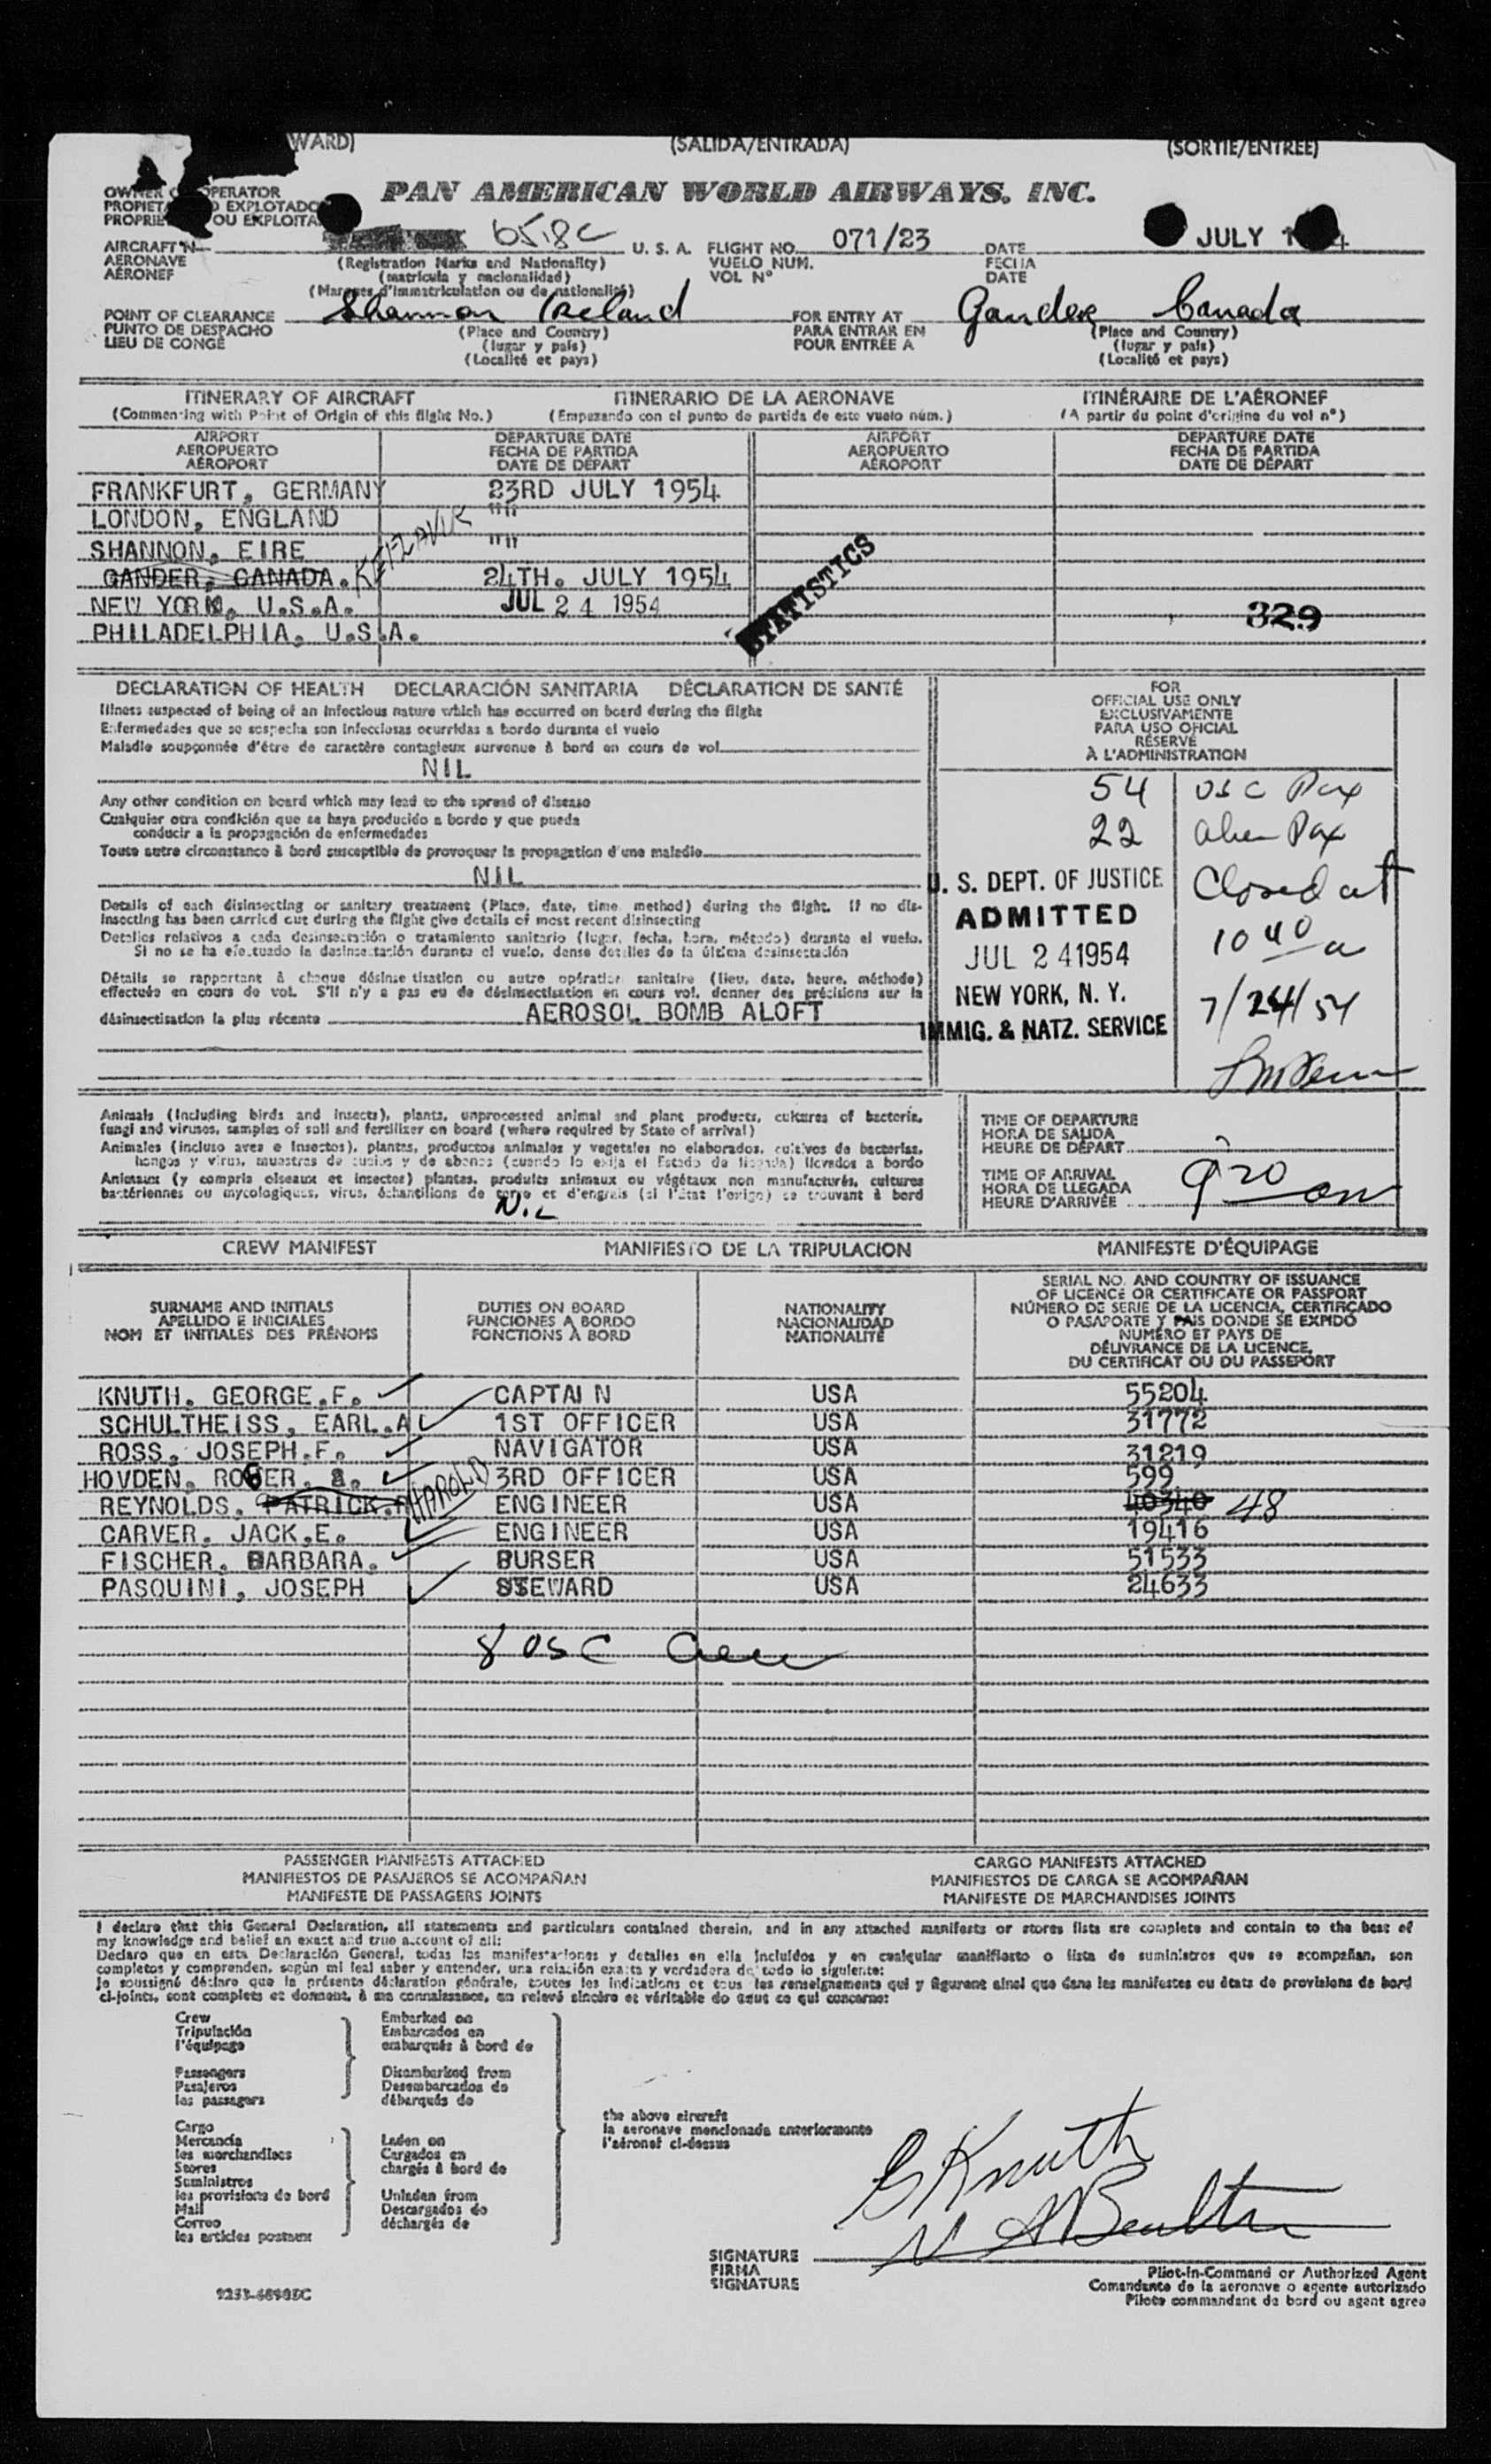 WARD) (SALIDA/ENTRADA) (SORTIE/ENTRÉE)
PAN AMERICAN WORLD AIRWAYS, INC.
OPERATOR
EXPLOTADO
OU EXPLOITA
AIRCRAFT N- 6518C U. S. A. FLIGHT NO. 071/23 DATE JULY
AERONAVE (Registration Marks and Nationality) VUELO NUM. FECHA
AÉRONEF (matrícula y nacionalidad) VOL N° DATE
(Marques d'immatriculation ou de nationalité)
POINT OF CLEARANCE Shannon Ireland FOR ENTRY AT Gander Canada
PUNTO DE DESPACHO (Place and Country) PARA ENTRAR EN (Place and Country)
LIEU DE CONGÉ (lugar y país) POUR ENTRÉE A (lugar y país)
(Localité et pays) (Localité et pays)
ITINERARY OF AIRCRAFT ITINERARIO DE LA AERONAVE ITINÉRAIRE DE L'AÉRONEF
(Commencing with Point of Origin of this flight No.) (Empezando con el punto de partida de este vuelo núm.) (A partir du point d'origine du vol n°)
AIRPORT DEPARTURE DATE AIRPORT DEPARTURE DATE
AEROPUERTO FECHA DE PARTIDA AEROPUERTO FECHA DE PARTIDA
AÉROPORT DATE DE DÉPART AÉROPORT DATE DE DÉPART
FRANKFURT, GERMANY 23RD JULY 1954
LONDON, ENGLAND """
SHANNON, EIRE """
GANDER, CANADA. 24TH. JULY 1954
NEW YORK, U.S.A. JUL 24 1954
STATISTICS
329
PHILADELPHIA, U.S.A.
DECLARATION OF HEALTH DECLARACIÓN SANITARIA DÉCLARATION DE SANTÉ
Illness suspected of being of an infectious nature which has occurred on board during the flight
Enfermedades que se sospecha son infecciosas ocurridas a bordo durante el vuelo
Maladie soupçonnée d'être de caractère contagieux survenue à bord en cours de vol
NIL
Any other condition on board which may lead to the spread of disease
Cualquier otra condición que se haya producido a bordo y que pueda
conducir a la propagación de enfermedades
Toute autre circonstance à bord susceptible de provoquer la propagation d'une maladie
NIL
Details of each disinsecting or sanitary treatment (Place, date, time, method) during the flight. If no dis-
insecting has been carried out during the flight give details of most recent disinsecting
Detalles relativos a cada desinsectación o tratamiento sanitario (lugar, fecha, hora, método) durante el vuelo.
Si no se ha efectuado la desinsectación durante el vuelo, dense detalles de la última desinsectación
Détails se rapportant à chaque désinsectisation ou autre opération sanitaire (lieu, date, heure, méthode)
effectuée en cours de vol. S'il n'y a pas eu de désinsectisation en cours vol, donner des précisions sur la
désinsectisation la plus récente AEROSOL BOMB ALOFT
FOR
OFFICIAL USE ONLY
EXCLUSIVAMENTE
PARA USO OFICIAL
RÉSERVÉ
À L'ADMINISTRATION
54 USC Pax
22 alien Pax
U. S. DEPT. OF JUSTICE
ADMITTED
JUL 241954
NEW YORK, N. Y.
IMMIG. & NATZ. SERVICE
Closed at
1040 a
7/24/54
Animals (including birds and insects), plants, unprocessed animal and plant products, cultures of bacteria,
fungi and viruses, samples of soil and fertilizer on board (where required by State of arrival)
Animales (incluso aves e insectos), plantas, productos animales y vegetales no elaborados, cultivos de bacterias,
hongos y virus, muestras de suelos y de abonos (cuando lo exija el Estado de llegada) llevados a bordo
Animaux (y compris oiseaux et insectes) plantes, produits animaux ou végétaux non manufacturés, cultures
bactériennes ou mycologiques, virus, échantillons de terre et d'engrais (si l'état l'exige) se trouvant à bord
NIL
TIME OF DEPARTURE
HORA DE SALIDA
HEURE DE DÉPART
TIME OF ARRIVAL
HORA DE LLEGADA
HEURE D'ARRIVÉE
920 am
CREW MANIFEST MANIFIESTO DE LA TRIPULACION MANIFESTE D'ÉQUIPAGE
SURNAME AND INITIALS
APELLIDO E INICIALES
NOM ET INITIALES DES PRÉNOMS
DUTIES ON BOARD
FUNCIONES A BORDO
FONCTIONS À BORD
NATIONALITY
NACIONALIDAD
NATIONALITÉ
SERIAL NO. AND COUNTRY OF ISSUANCE
OF LICENCE OR CERTIFICATE OR PASSPORT
NÚMERO DE SERIE DE LA LICENCIA, CERTIFICADO
O PASAPORTE Y PAIS DONDE SE EXPIDÓ
NUMÉRO ET PAYS DE
DÉLIVRANCE DE LA LICENCE,
DU CERTIFICAT OU DU PASSEPORT
KNUTH, GEORGE.F. CAPTAIN USA 55204
SCHULTHEISS, EARL.A 1ST OFFICER USA 31772
ROSS, JOSEPH.F. NAVIGATOR USA 31219
HOVDEN, ROGER. 3RD OFFICER USA 599
REYNOLDS, PATRICK. HAROLD ENGINEER USA 40340 48
CARVER, JACK.E. ENGINEER USA 19416
FISCHER, BARBARA. PURSER USA 51533
PASQUINI, JOSEPH STEWARD USA 24633
8 USC Crew
PASSENGER MANIFESTS ATTACHED CARGO MANIFESTS ATTACHED
MANIFIESTOS DE PASAJEROS SE ACOMPAÑAN MANIFIESTOS DE CARGA SE ACOMPAÑAN
MANIFESTE DE PASSAGERS JOINTS MANIFESTE DE MARCHANDISES JOINTS
I declare that this General Declaration, all statements and particulars contained therein, and in any attached manifests or stores lists are complete and contain to the best of
my knowledge and belief an exact and true account of all:
Declaro que en esta Declaración General, todas las manifestaciones y detalles en ella incluídos y en cualquier manifiesto o lista de suministros que se acompañan, son
completos y comprenden, según mi leal saber y entender, una relación exacta y verdadera de todo lo siguiente:
Je soussigné déclare que la présente déclaration générale, toutes les indications et tous les renseignements qui y figurent ainsi que dans les manifestes ou états de provisions de bord
ci-joints, sont complets et donnent, à ma connaissance, un relevé sincère et véritable de tous ce qui concerne:
Crew Embarked on
Tripulación Embarcados en
l'équipage embarqués à bord de
Passengers Disembarked from
Pasajeros Desembarcados de
les passagers débarqués de
Cargo
Mercancía Laden on
les marchandises Cargados en
Stores chargés à bord de
Suministros
les provisions de bord Unladen from
Mail Descargados de
Correo déchargés de
les articles postaux
the above aircraft
la aeronave mencionada anteriormente
l'aéronef ci-dessus
G Knuth
SIGNATURE
FIRMA
SIGNATURE
Pilot-in-Command or Authorized Agent
Comandante de la aeronave o agente autorizado
Pilote commandant de bord ou agent agree